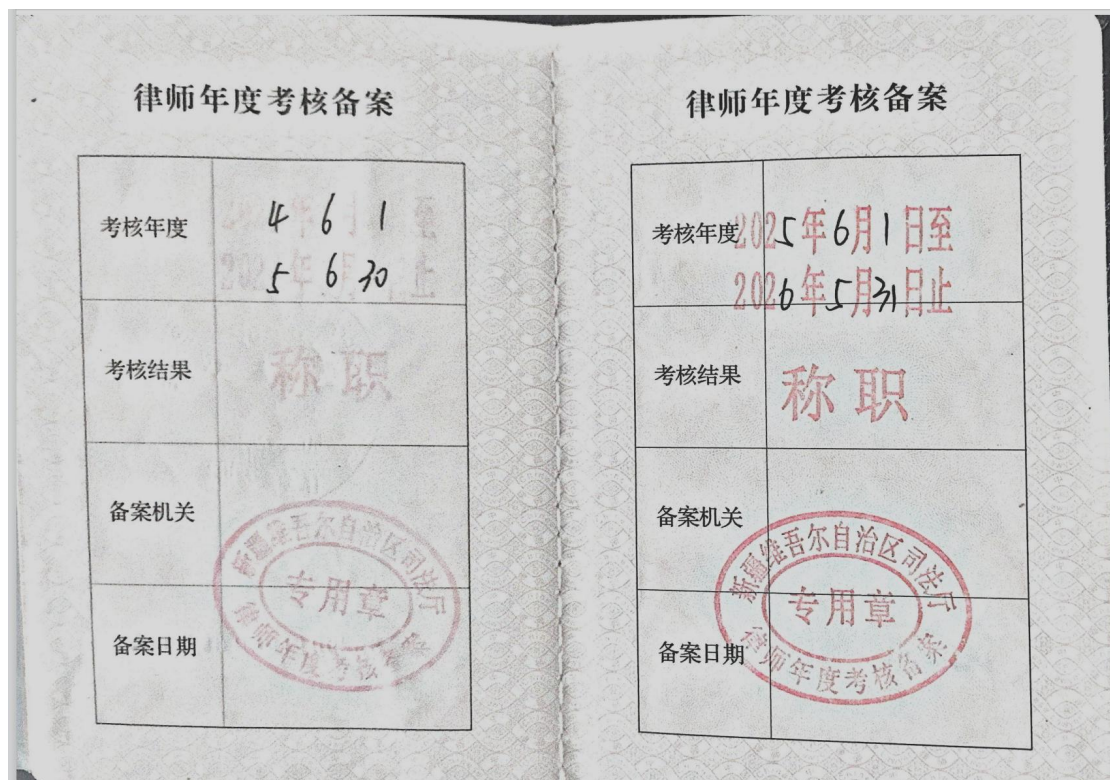 律师年度考核备案
考核年度
2024年6月1日至
2025年6月30日止
考核结果
称职
备案机关
新疆维吾尔自治区司法厅
专用章
律师年度考核备案
备案日期
律师年度考核备案
考核年度
2025年6月1日至
2026年5月31日止
考核结果
称职
备案机关
新疆维吾尔自治区司法厅
专用章
律师年度考核备案
备案日期